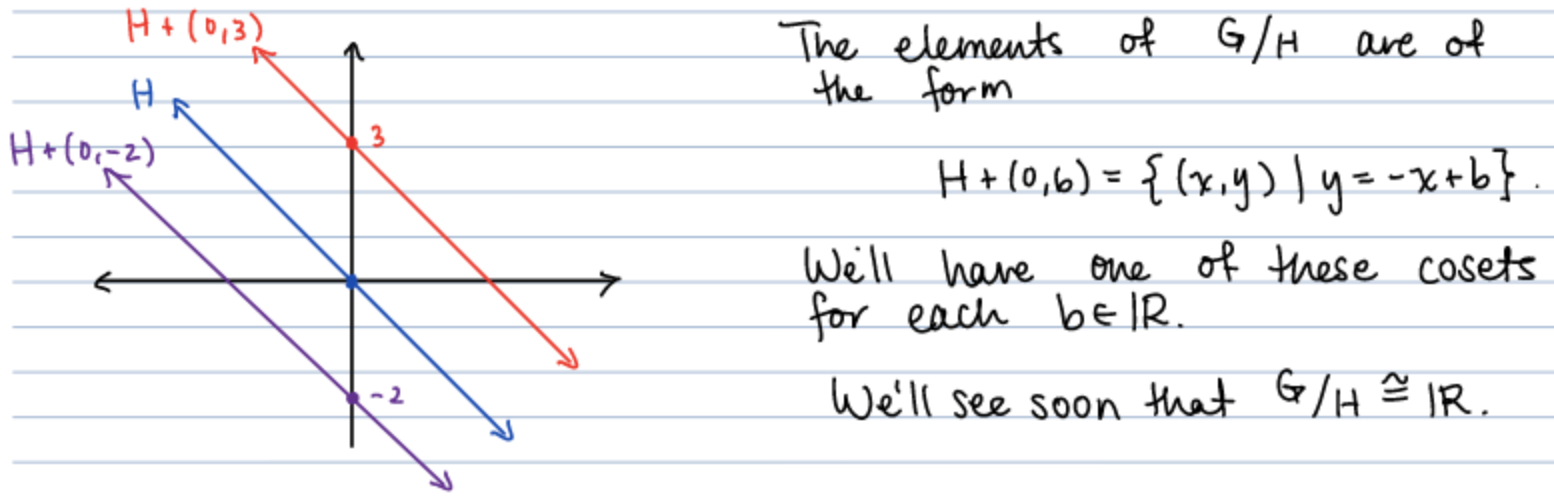 H + (0,3)
H
H + (0,-2)
3
-2
The elements of G/H are of
the form
H + (0,b) = {(x,y) | y = -x+b}.
We'll have one of these cosets
for each b ∈ ℝ.
We'll see soon that G/H ≅ ℝ.